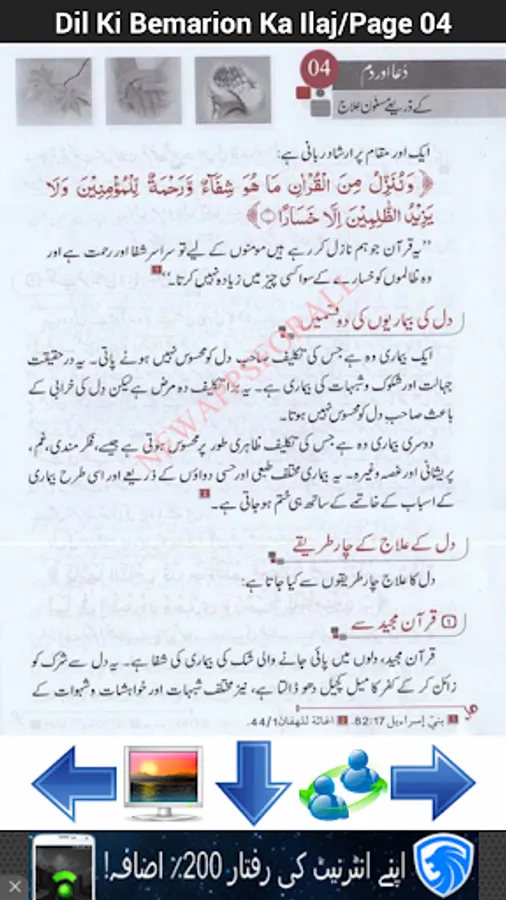 Dil Ki Bemarion Ka Ilaj/Page 04
04
دُعا اور دم
کے ذریعے مسنون علاج
ایک اور مقام پر ارشاد ربانی ہے:
﴿ وَنُنَزِّلُ مِنَ الْقُرْاٰنِ مَا هُوَ شِفَآءٌ وَّرَحْمَةٌ لِّلْمُؤْمِنِيْنَ وَلَا
يَزِيْدُ الظّٰلِمِيْنَ اِلَّا خَسَارًا ﴾
”یہ قرآن جو ہم نازل کر رہے ہیں مومنوں کے لیے تو سراسر شفا اور رحمت ہے اور
وہ ظالموں کو خسارے کے سوا کسی چیز میں زیادہ نہیں کرتا۔“ 1
دل کی بیماریوں کی دو قسمیں
ایک بیماری وہ ہے جس کی تکلیف صاحبِ دل کو محسوس نہیں ہونے پاتی۔ یہ درحقیقت
جہالت اور شکوک و شبہات کی بیماری ہے۔ یہ بڑا تکلیف دہ مرض ہے لیکن دل کی خرابی کے
باعث صاحبِ دل کو محسوس نہیں ہوتا۔
دوسری بیماری وہ ہے جس کی تکلیف ظاہری طور پر محسوس ہوتی ہے جیسے، فکرمندی، غم،
پریشانی اور غصہ وغیرہ۔ یہ بیماری مختلف طبعی اور حسی دواؤں کے ذریعے اور اسی طرح بیماری
کے اسباب کے خاتمے کے ساتھ ہی ختم ہو جاتی ہے۔ 2
NEWAPPSFORALL
دل کے علاج کے چار طریقے
دل کا علاج چار طریقوں سے کیا جاتا ہے:
① قرآن مجید سے
قرآن مجید، دلوں میں پائی جانے والی شک کی بیماری کی شفا ہے۔ یہ دل سے شرک کو
زائل کر کے کفر کا میل کچیل دھو ڈالتا ہے، نیز مختلف شبہات اور خواہشات و شہوات کے
1 بنيٓ إسراءيل 82:17. 2 اغاثة للهفان 44/1.
اپنے انٹرنیٹ کی رفتار 200٪ اضافہ!